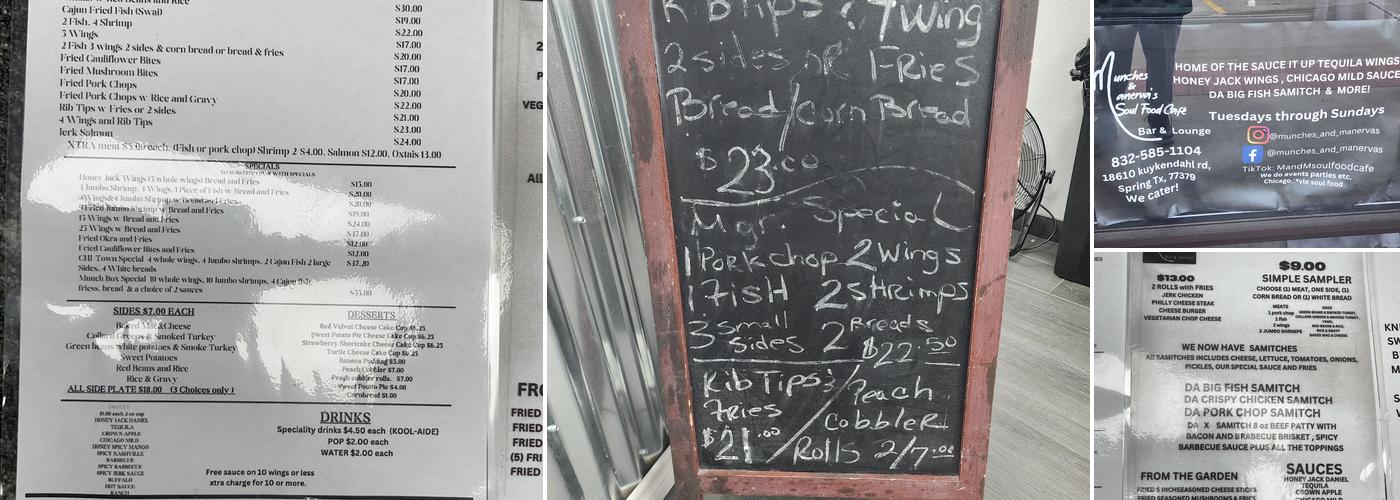 Cajun Fried Fish (Swai) $30.00
2 Fish, 4 Shrimp $19.00
5 Wings $22.00
2 Fish 3 wings 2 sides & corn bread or bread & fries $17.00
Fried Cauliflower Bites $20.00
Fried Mushroom Bites $17.00
Fried Pork Chops $17.00
Fried Pork Chops w Rice and Gravy $20.00
Rib Tips w Fries or 2 sides $22.00
4 Wings and Rib Tips $21.00
Jerk Salmon $23.00
$24.00
XTRA meat $5.00 each, (Fish or pork chop) Shrimp 2 $4.00, Salmon $12.00, Oxtais 13.00
SPECIALS
NO SUBSTITUTIONS WITH SPECIALS
Honey Jack Wings (5 whole wings) Bread and Fries $15.00
3 Jumbo Shrimp, 4 Wings, 1 Piece of Fish w Bread and Fries $20.00
4 Wings & 4 Jumbo Shrimp w Bread and Fries $20.00
Jumbo Shrimp w Bread and Fries $19.00
15 Wings w Bread and Fries $24.00
25 Wings w Bread and Fries $37.00
Fried Okra and Fries $12.00
Fried Cauliflower Bites and Fries $12.00
CHI-Town Special 4 whole wings, 4 Jumbo shrimps, 2 Cajun Fish 2 large $37.20
Sides, 4 White breads
Munch Box Special 10 whole wings, 10 Jumbo shrimps, 4 Cajun fish,
friess, bread & a choice of 2 sauces $55.00
SIDES $7.00 EACH
Baked Mac & Cheese
Collard Greens & Smoked Turkey
Green beans white potatoes & Smoke Turkey
Sweet Potatoes
Red Beans and Rice
Rice & Gravy
ALL SIDE PLATE $18.00 (3 Choices only )
DESSERTS
Red Velvet Cheese Cake Cup $6.25
Sweet Potato Pie Cheese Cake Cup $6.25
Strawberry Shortcake Cheese Cake Cup $6.25
Turtle Cheese Cake Cup $6.25
Banana Pudding $5.00
Peach Cobbler $7.00
Peach cobbler rolls. $7.00
Sweet Potato Pie $4.00
Cornbread $1.00
SAUCES
$1.00 each 2 oz cup
HONEY JACK DANIEL
TEQUILA
CROWN APPLE
CHICAGO MILD
HONEY SPICY MANGO
SPICY NASHVILLE
BARBECUE
SPICY BARBECUE
SPICY JERK SAUCE
BUFFALO
HOT
RANCH
DRINKS
Speciality drinks $4.50 each (KOOL-AIDE)
POP $2.00 each
WATER $2.00 each
Free sauce on 10 wings or less
xtra charge for 10 or more.
FRIED
FRIED
FRIED
FRIED
(5) FRI
FRIED
Rib Tips & 4 Wing
2 sides OR FRieS
Bread/Corn Bread
$23.00
Mgr. Special
1 Porkchop 2 Wings
1 FisH 2 SHrimps
3 Small Sides 2 Breads
$22.50
Rib Tips & Fries
$21.00
Peach Cobbler
Rolls 2/7.00
Munches & Manerva's
Soul Food Cafe
Bar & Lounge
832-585-1104
18610 kuykendahl rd,
Spring Tx, 77379
We cater!
HOME OF THE SAUCE IT UP TEQUILA WINGS
HONEY JACK WINGS , CHICAGO MILD SAUCE
DA BIG FISH SAMITCH & MORE!
Tuesdays through Sundays
@munches_and_manervas
@munches_and_manervas
TikTok: MandMsoulfoodcafe
We do events parties etc.
Chicago style soul food
$13.00
2 ROLLS with FRIES
JERK CHICKEN
PHILLY CHEESE STEAK
CHEESE BURGER
VEGETARIAN CHOP CHEESE
$9.00
SIMPLE SAMPLER
CHOOSE (1) MEAT, ONE SIDE, (1)
CORN BREAD OR (1) WHITE BREAD
MEATS
1 pork chop
1 fish
2 wings
2 JUMBO SHRIMPS
SIDES
GREEN BEANS & SMOKED TURKEY,
COLLARD GREENS & SMOKED TURKEY,
YAMS,
RED BEANS & RICE,
RICE & GRAVY
BAKED MAC & CHEESE
WE NOW HAVE SAMITCHES
All SAMITCHES INCLUDES CHEESE, LETTUCE, TOMATOES, ONIONS,
PICKLES, OUR SPECIAL SAUCE AND FRIES
DA BIG FISH SAMITCH
DA CRISPY CHICKEN SAMITCH
DA PORK CHOP SAMITCH
DA X SAMITCH 8 oz BEEF PATTY WITH
BACON AND BARBECUE BRISKET , SPICY
BARBECUE SAUCE PLUS ALL THE TOPPINGS
FROM THE GARDEN
FRIED 5 INCHSEASONED CHEESE STICKS
FRIED SEASONED MUSHROOMS & FRIES
SAUCES
HONEY JACK DANIEL
TEQUILA
CROWN APPLE
CHICAGO MILD